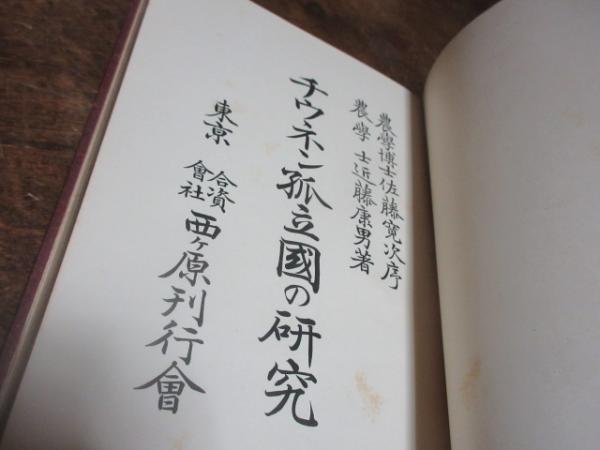 農學博士佐藤寛次序
農學士近藤康男著
チウネン孤立國の研究
東京 合資會社 西ヶ原刊行會